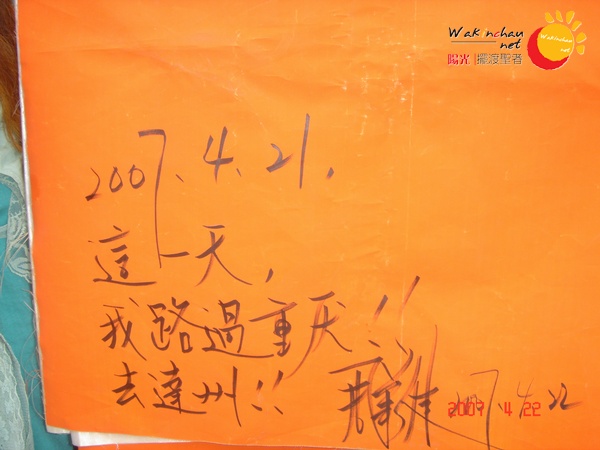 Wak nchau
net
陽光|擺渡聖者
WaKinchau
net
2007.4.21.
這一天,
我路過重庆!!
去達州!!
2007.4.22
2007 4 22